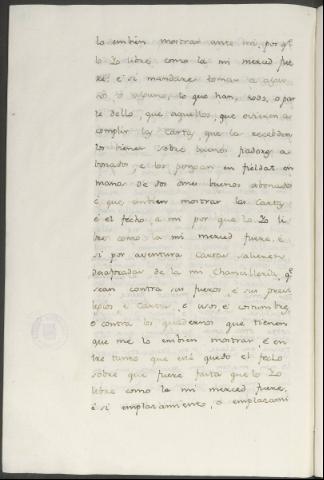 lo embien mostrar ante mi, por q.e
lo Yo libre como la mi merced fue
re: e si mandare tomar a alguno
ó á algunos, lo que han, todo, o par
te dello, que aquellos, que ovieren a
complir la carta, que la recebden
los bienes sobre buenos fiadores a
bonados, e los pongan en fieldat en
mano de dos omes buenos abonados
é que embien mostrar la carta
é el fecho a mi por que lo Yo li
bre como la mi merced fuere. é
si por aventura cartas salieren
desaforadas de la mi Chancilleria, q.e
sean contra sus fueros, é sus previ
legios é cartas, é usos, é costumbres,
o contra los quadernos que tienen
que me lo embien mostrar, e en
tre tanto que esté quedo el fecho
sobre que fuere fasta que lo Yo
libre como la mi merced fuere.
é si emplasamiento, o emplaçami